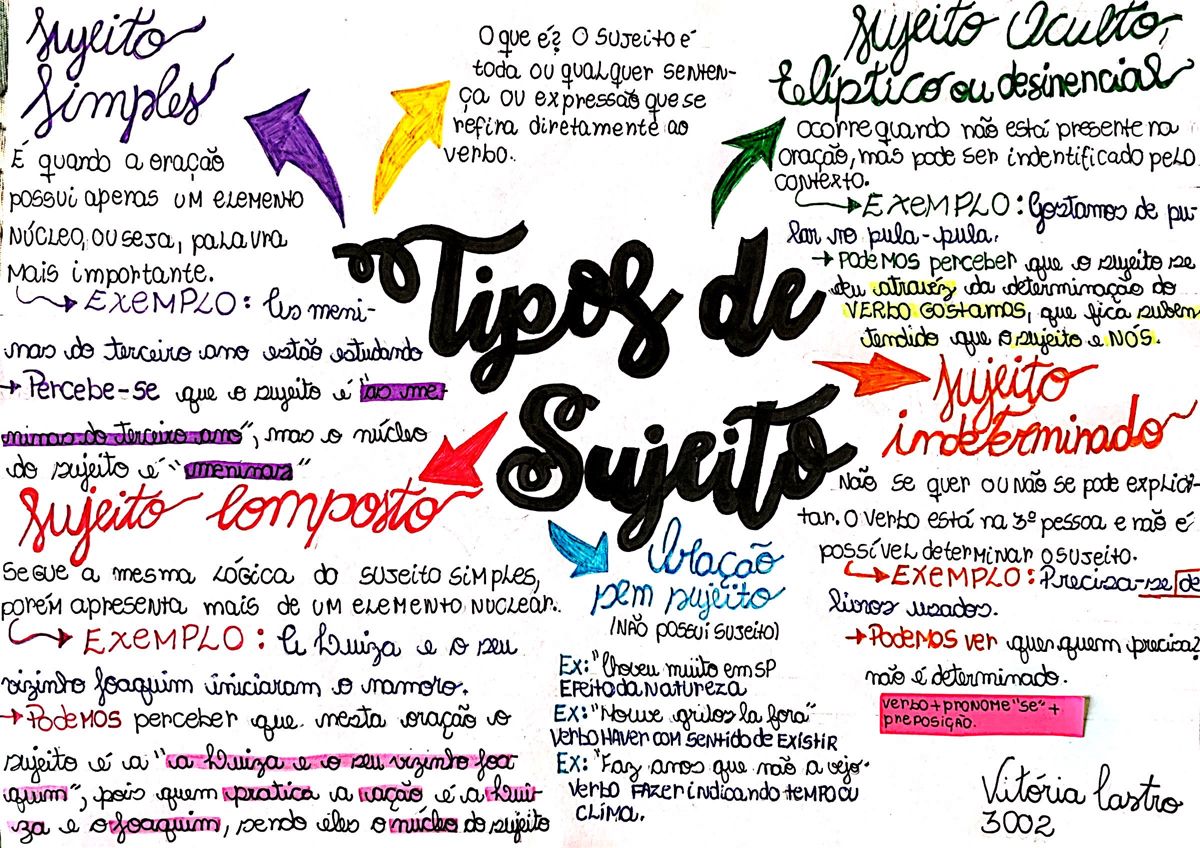 Tipos de
Sujeito
O que é? O Sujeito é
toda ou qualquer senten-
ça ou expressão que se
refira diretamente ao
verbo.
Sujeito
Simples
É quando a oração
possui apenas um elemento
núcleo, ou seja, palavra
mais importante.
EXEMPLO: As meni-
nas do terceiro ano estão estudando
Percebe-se que o sujeito é "as me-
ninas do terceiro ano", mas o núcleo
do sujeito é "meninas"
Sujeito Composto
Segue a mesma lógica do sujeito simples,
porém apresenta mais de um elemento nuclear.
EXEMPLO: A Luiza e o seu
vizinho Joaquim iniciaram o namoro.
Podemos perceber que nesta oração o
sujeito é a "a Luiza e o seu vizinho Joa
quim", pois quem pratica a ração é a Lui-
za e o Joaquim, sendo eles o núcleo do sujeito
Sujeito Oculto,
Elíptico ou desinencial
ocorre quando não está presente na
oração, mas pode ser indentificado pelo
contexto.
EXEMPLO: Gostamos de pu-
lar no pula-pula.
Podemos perceber que o sujeito se
deu atravez da determinação do
VERBO GOSTAMOS, que fica suben
tendido que o sujeito e NÓS.
Sujeito
indeterminado
Não se quer ou não se pode explici-
tar. O verbo está na 3ª pessoa e não é
possível determinar o sujeito.
EXEMPLO: Precisa-se de
livros usados.
Podemos ver quer quem precisa?
não é determinado.
verbo + PRONOME "se" +
preposição.
Oração
sem sujeito
(NÃO possui sujeito)
Ex: "Choveu muito em SP
Efeito da Natureza
Ex: "Houve gritos la fora"
Verbo HAVER com sentido de EXISTIR
Ex: "Faz anos que não a vejo.
Verbo FAZER indicando tempo ou
clima.
Vitória Castro
3002